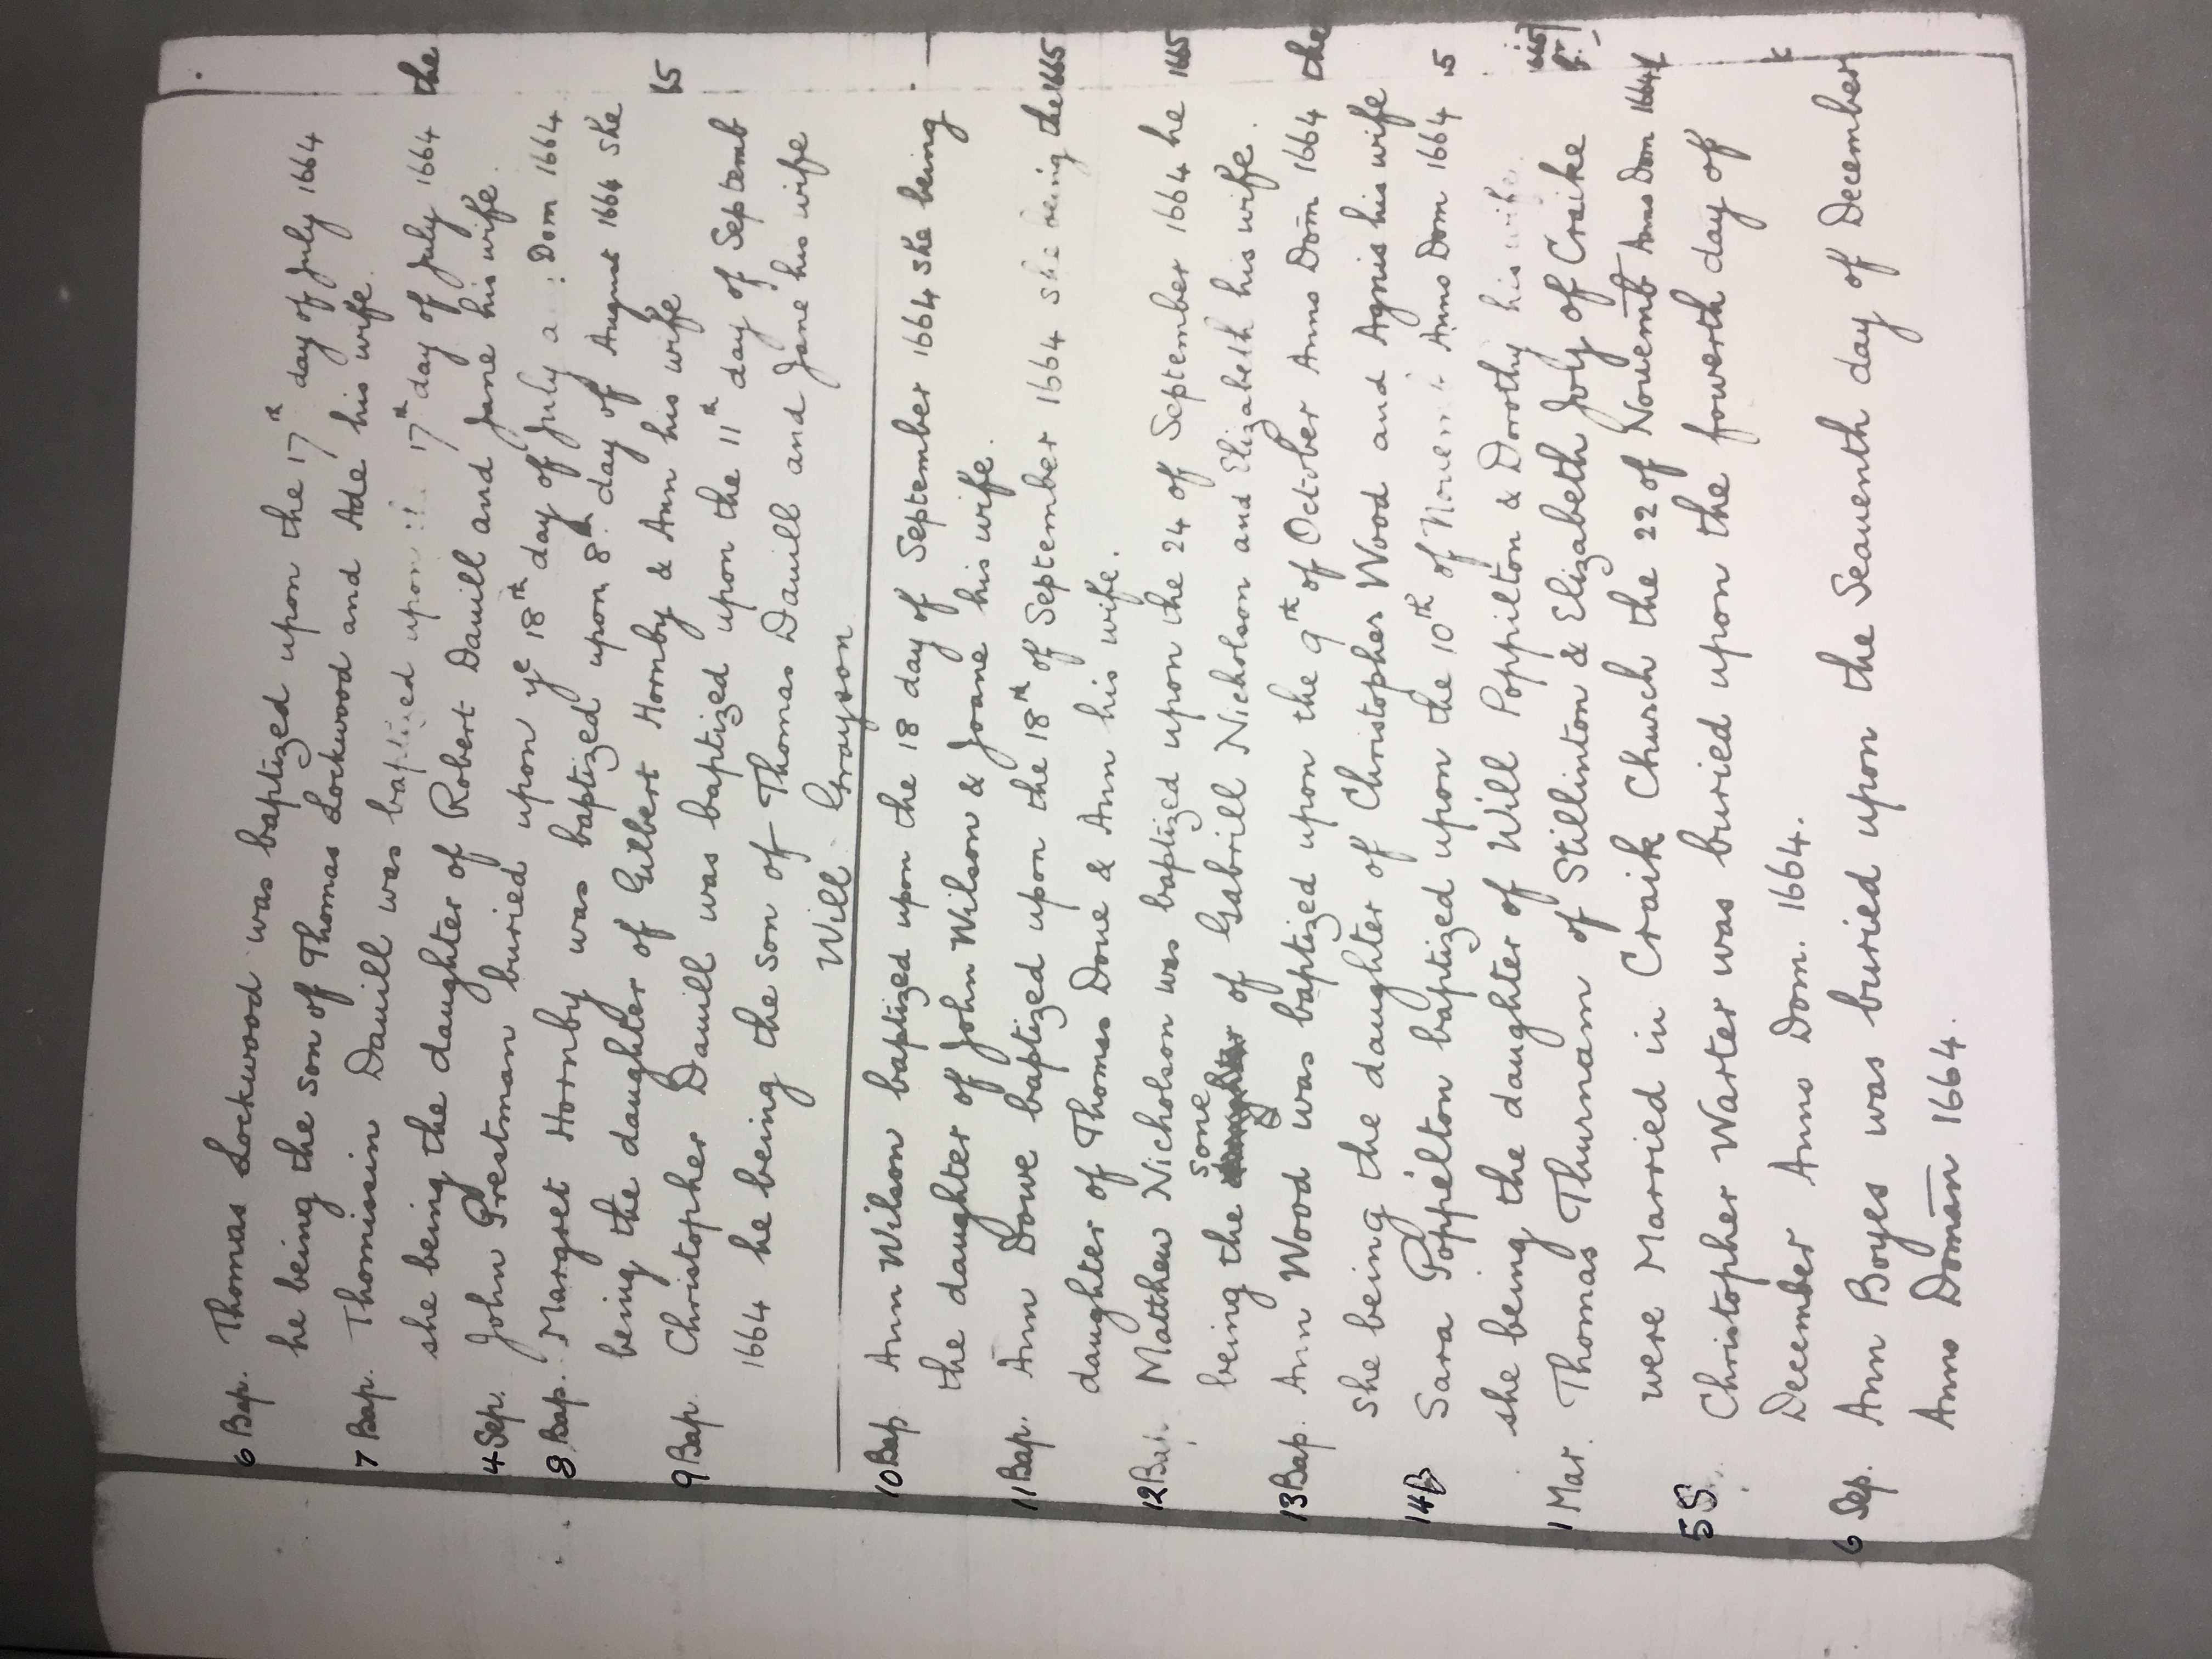 6 Bap. Thomas Lockwood was baptized upon the 17th day of July 1664
he being the son of Thomas Lockwood and Ade his wife.
7 Bap. Thomissin Dauill was baptized upon the 17th day of July 1664 the
she being the daughter of Robert Dauill and Jane his wife.
4 Sep. John Prestman buried upon ye 18th day of July a : Dom 1664
8 Bap. Margret Hornby was baptized upon 8th day of August 1664 she
being the daughter of Gilbert Hornby & Ann his wife 65
9 Bap. Christopher Dauill was baptized upon the 11th day of Septemb
1664 he being the son of Thomas Dauill and Jane his wife
Will Grayson
10 Bap Ann Wilson baptized upon the 18 day of September 1664 she being
the daughter of John Wilson & Joane his wife.
11 Bap. Ann Dowe baptized upon the 18th of September 1664 she being the 1665
daughter of Thomas Done & Ann his wife.
12 Bap. Matthew Nicholson was baptized upon the 24 of September 1664 he 1665
being the daughter sone of Gabrill Nicholson and Elizabeth his wife.
13 Bap. Ann Wood was baptized upon the 9th of October Anno Dom 1664 the
she being the daughter of Christopher Wood and Agnis his wife
14 B Sara Poppelton baptized upon the 10th of Anno Dom 1664 5
she being the daughter of Will Poppilton & Dorothy his wife.
1 Mar. Thomas Thurnam of Stillinton & Elizabeth Joly of Craike
were Married in Craik Church the 22 of Nouemb Anno Dom 1664
5 S. Christopher Warter was buried upon the fowerth day of
December Anno Dom. 1664.
6 Sep. Ann Boyes was buried upon the Seauenth day of December
Anno Domin 1664.